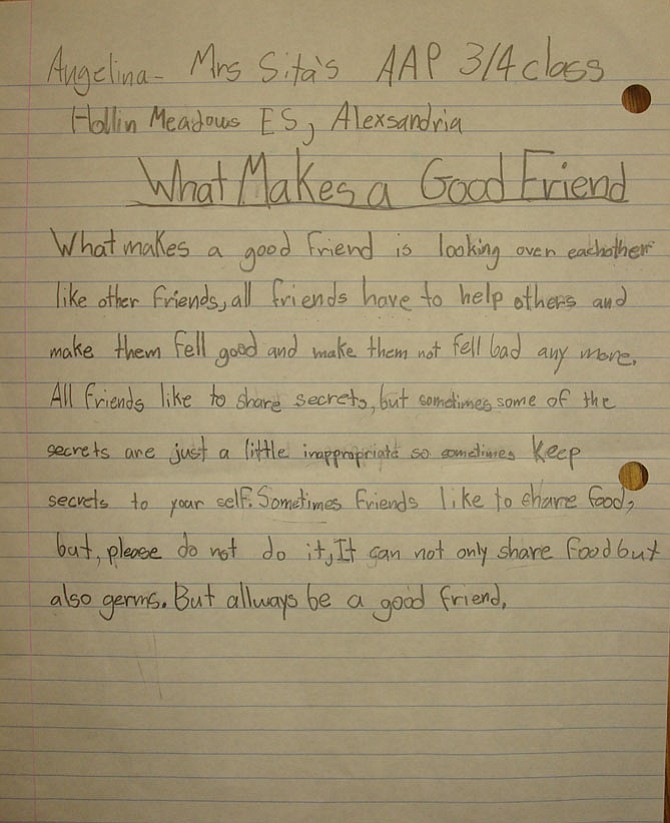 Angelina- Mrs Sita's AAP 3/4 class
Hollin Meadows ES, Alexsandria
What Makes a Good Friend
What makes a good friend is looking over eachother
like other friends, all friends have to help others and
make them fell good and make them not fell bad any more.
All friends like to share secrets, but sometimes some of the
secrets are just a little inappropriate so sometimes keep
secrets to your self. Sometimes friends like to share food,
but, please do not do it, It can not only share food but
also germs. But allways be a good friend.